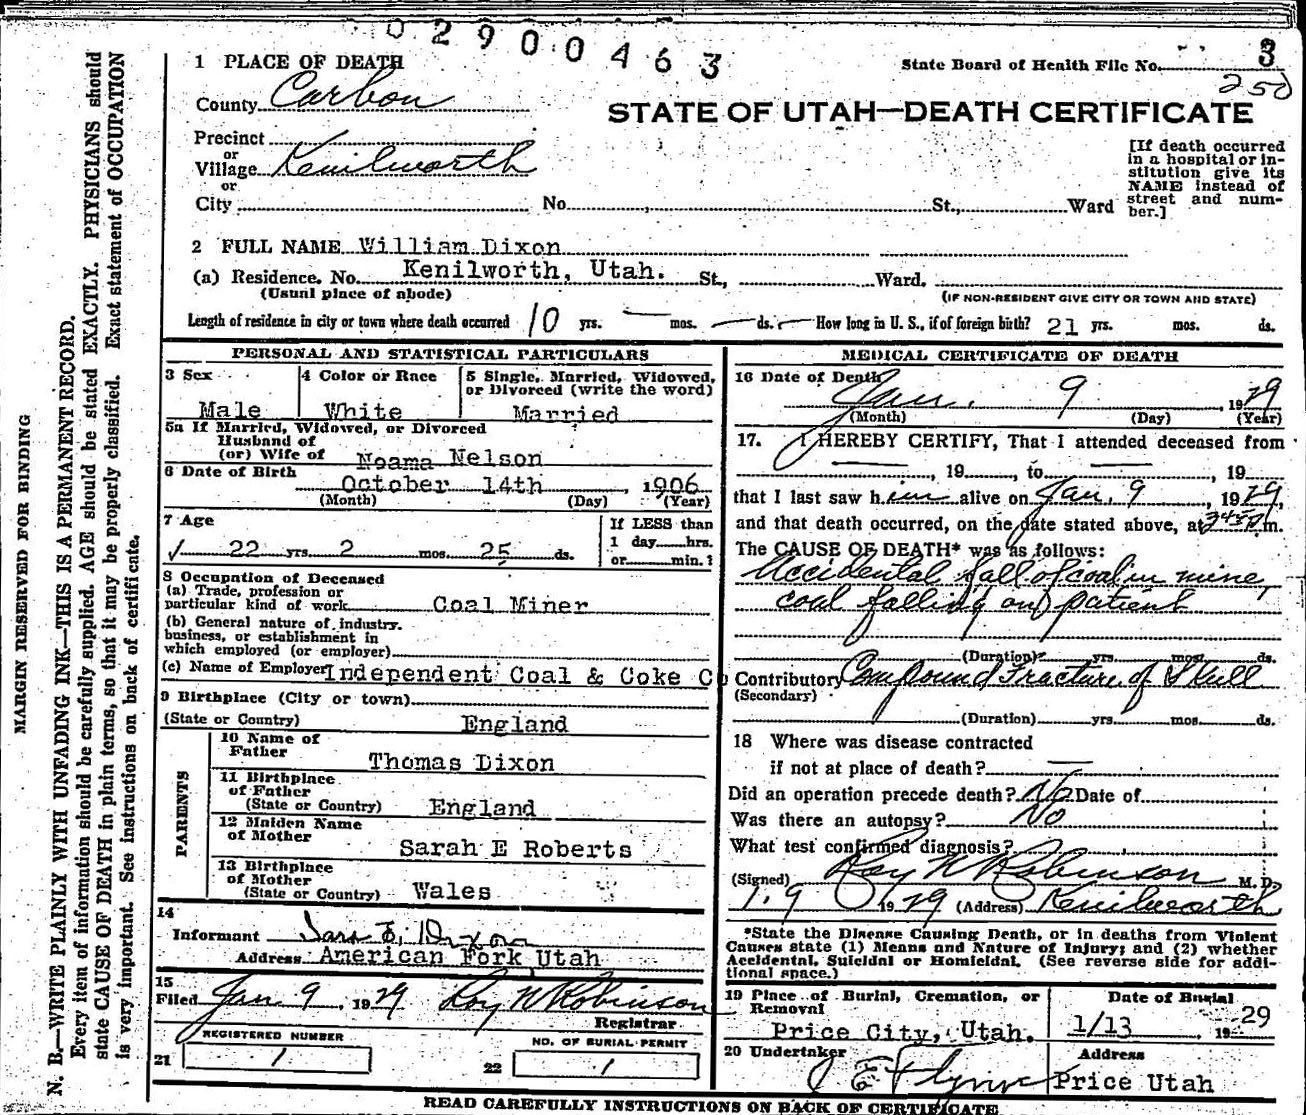 02900463
State Board of Health File No. 3
250
1 PLACE OF DEATH
County Carbon
STATE OF UTAH—DEATH CERTIFICATE
Precinct
or
Village Kenilworth
or
City No. St., Ward
[If death occurred
in a hospital or in-
stitution give its
NAME instead of
street and num-
ber.]
2 FULL NAME William Dixon
(a) Residence. No. Kenilworth, Utah. St., Ward.
(Usual place of abode) (IF NON-RESIDENT GIVE CITY OR TOWN AND STATE)
Length of residence in city or town where death occurred 10 yrs. — mos. — ds. — How long in U. S., if of foreign birth? 21 yrs. mos. ds.
PERSONAL AND STATISTICAL PARTICULARS
3 Sex
Male
4 Color or Race
White
5 Single, Married, Widowed,
or Divorced (write the word)
Married
5a If Married, Widowed, or Divorced
Husband of
(or) Wife of Noama Nelson
6 Date of Birth
October 14th, 1906
(Month) (Day) (Year)
7 Age
22 yrs. 2 mos. 25 ds.
If LESS than
1 day hrs.
or min.?
8 Occupation of Deceased
(a) Trade, profession or
particular kind of work Coal Miner
(b) General nature of industry,
business, or establishment in
which employed (or employer)
(c) Name of Employer Independent Coal & Coke Co
9 Birthplace (City or town)
(State or Country) England
PARENTS
10 Name of
Father Thomas Dixon
11 Birthplace
of Father
(State or Country) England
12 Maiden Name
of Mother Sarah E Roberts
13 Birthplace
of Mother
(State or Country) Wales
14
Informant E. Dixon
Address American Fork Utah
15
Filed Jan 9, 1929 Roy W Robinson
Registrar
REGISTERED NUMBER
21 1
NO. OF BURIAL PERMIT
22 1
MEDICAL CERTIFICATE OF DEATH
16 Date of Death
Jan. 9, 1929
(Month) (Day) (Year)
17. I HEREBY CERTIFY, That I attended deceased from
—, 19 , to —, 19
that I last saw him alive on Jan. 9, 1929,
and that death occurred, on the date stated above, at m.
The CAUSE OF DEATH* was as follows:
Accidental fall of coal in mine,
coal falling on patient
(Duration) yrs. mos. ds.
Contributory Compound Fracture of Skull
(Secondary)
(Duration) yrs. mos. ds.
18 Where was disease contracted
if not at place of death? —
Did an operation precede death? No Date of
Was there an autopsy? No
What test confirmed diagnosis?
(Signed) Roy W Robinson M. D.
1.9 1929 (Address) Kenilworth
*State the Disease Causing Death, or in deaths from Violent
Causes state (1) Means and Nature of Injury; and (2) whether
Accidental, Suicidal or Homicidal. (See reverse side for addi-
tional space.)
19 Place of Burial, Cremation, or
Removal
Price City, Utah.
Date of Burial
1/13 1929
20 Undertaker
J E Flynn
Address
Price Utah
READ CAREFULLY INSTRUCTIONS ON BACK OF CERTIFICATE
MARGIN RESERVED FOR BINDING
N. B.—WRITE PLAINLY WITH UNFADING INK—THIS IS A PERMANENT RECORD.
Every item of information should be carefully supplied. AGE should be stated EXACTLY. PHYSICIANS should
state CAUSE OF DEATH in plain terms, so that it may be properly classified. Exact statement of OCCUPATION
is very important. See instructions on back of certificate.